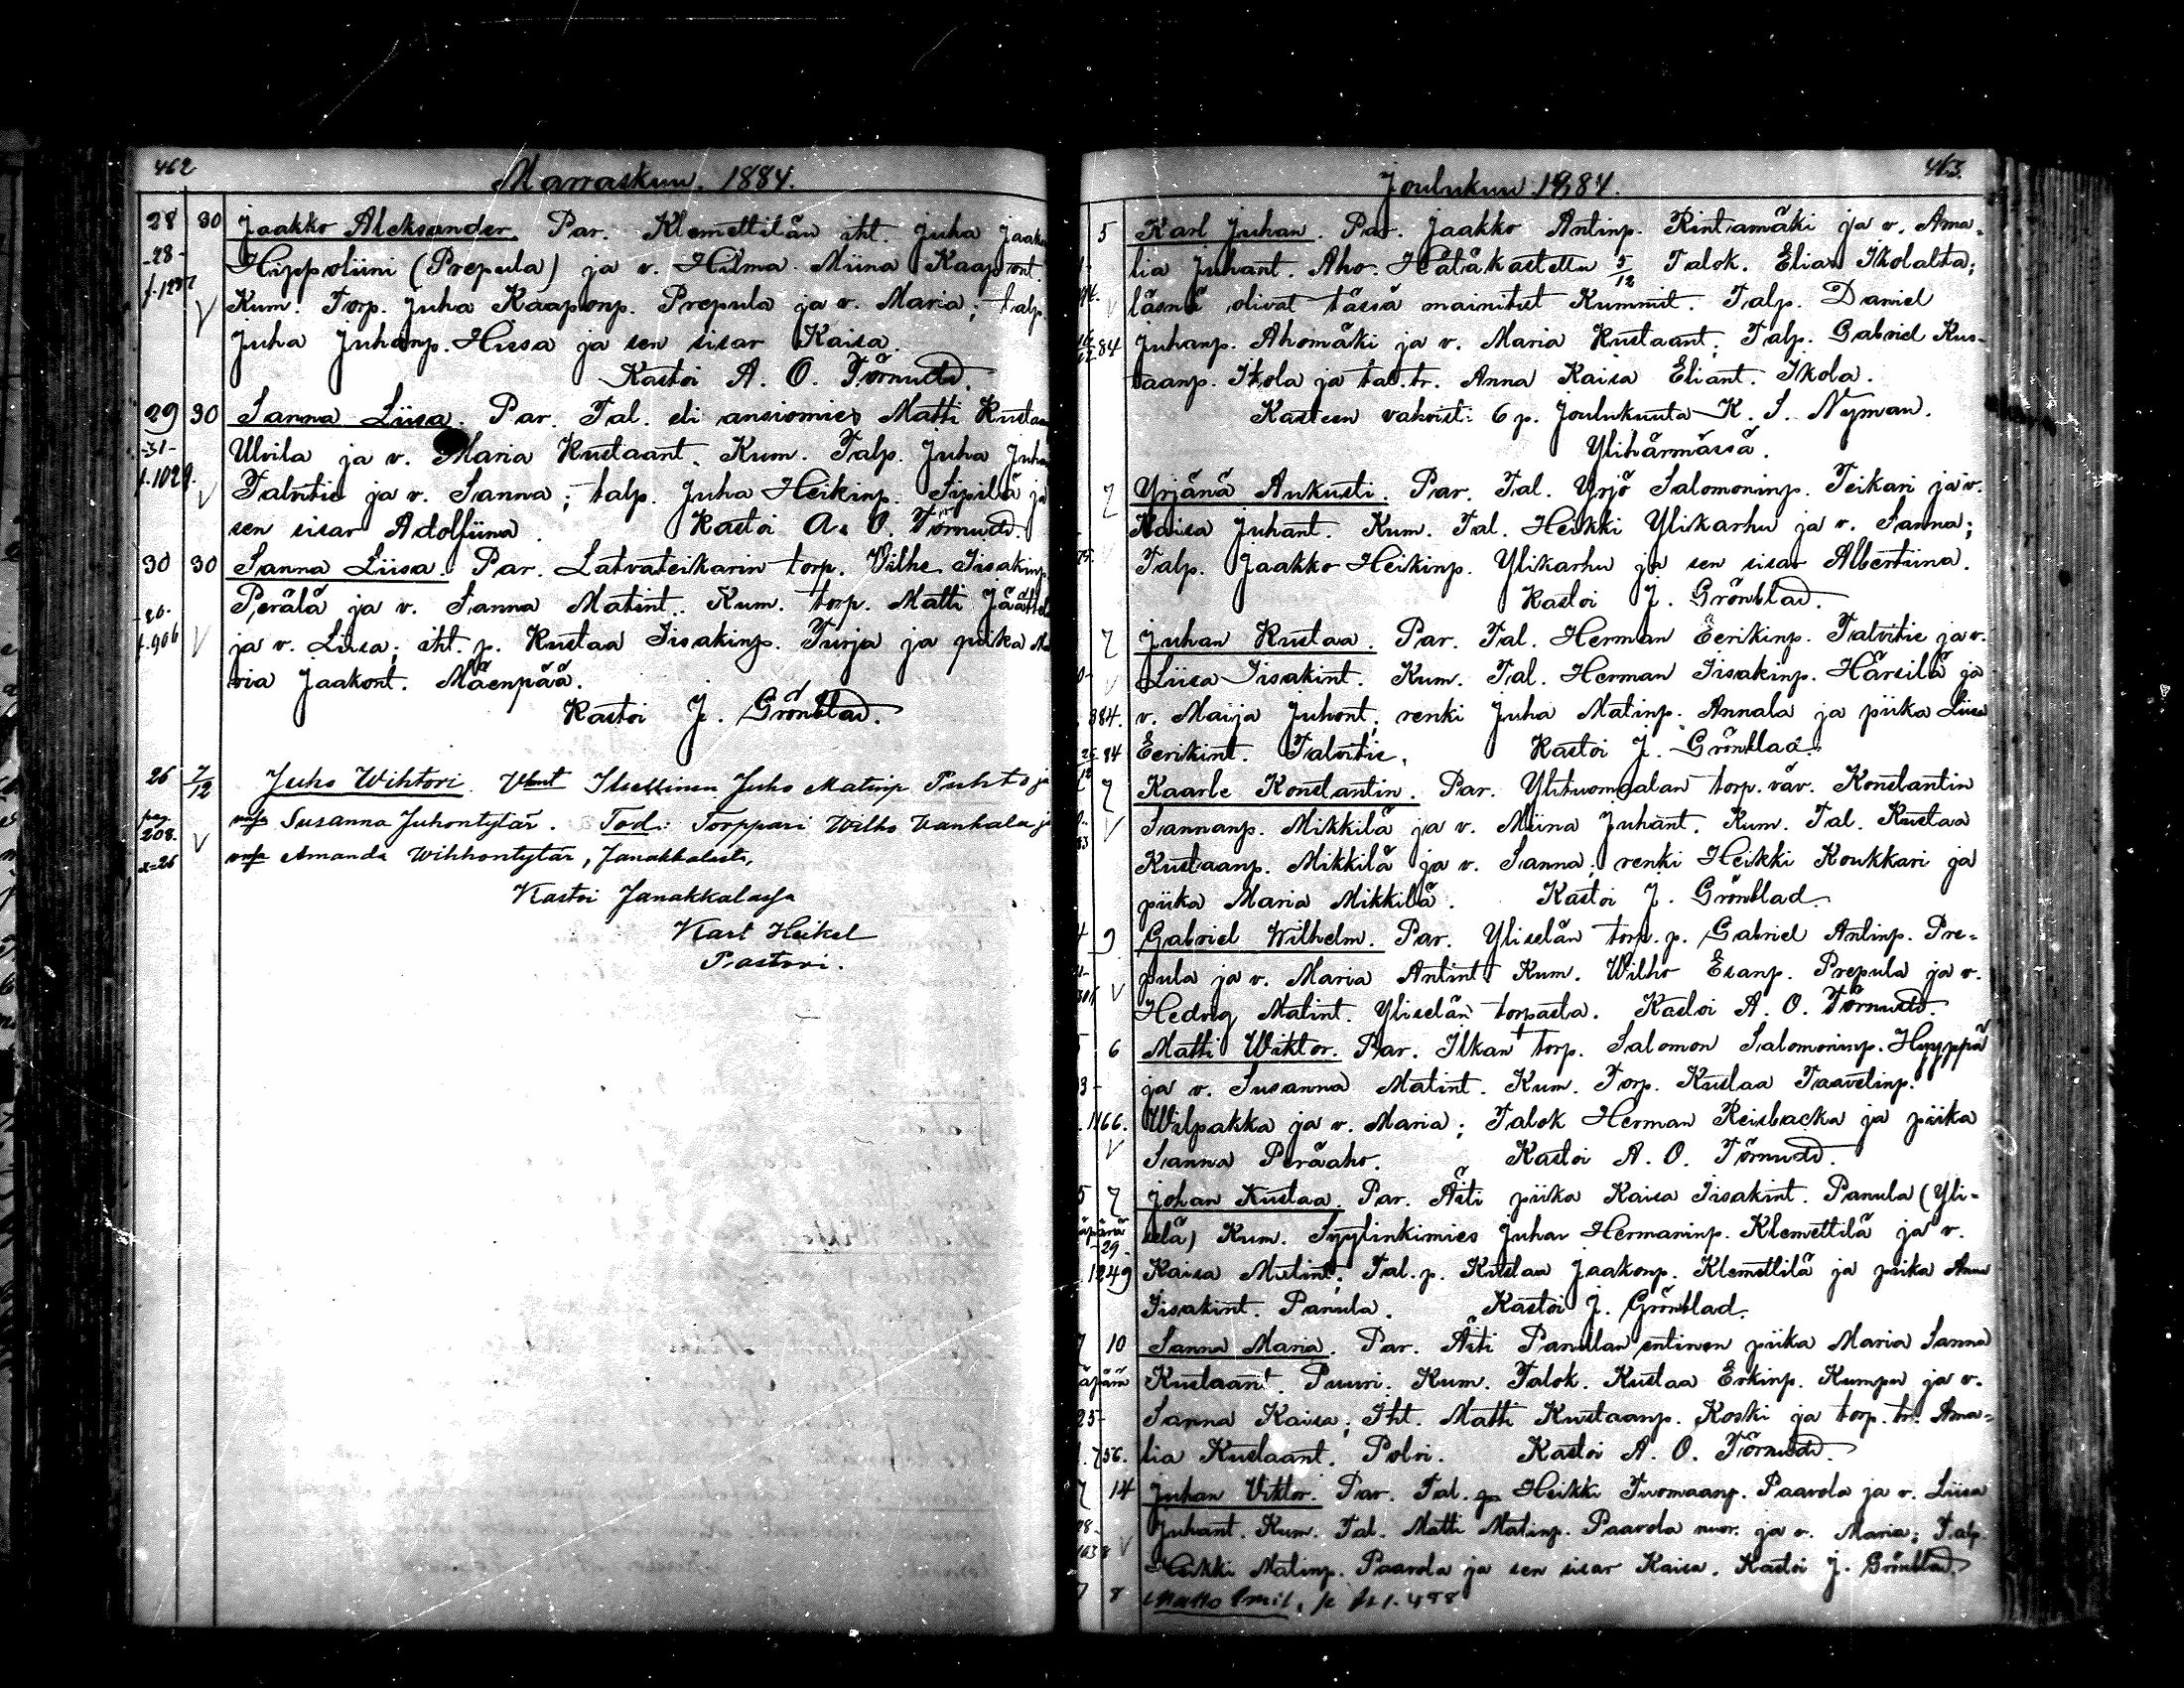 462
Marraskuu. 1884.
28 30 Jaakko Aleksander. Par. Klemettilän iht. Juha Jaako
-28- Hippoliini (Prepula) ja v. Hilma Miina Kaapont.
Kum. Torp. Juha Kaaponp. Prepula ja v. Maria; talp.
Juha Juhanp. Hissa ja sen sisar Kaisa.
Kastoi A. O. Törnudd.
29 30 Sanna Liisa. Par. Tal. eli ansiomies Matti Kustaa
-31- Ulvila ja v. Maria Kustaant. Kum. Talp. Juha Juha
f.1029. Talvitie ja v. Sanna; talp. Juha Heikinp. Sipilä ja
sen sisar Adolfiina. Kastoi A. O. Törnudd.
30 30 Sanna Liisa. Par. Latvateikarin torp. Vilhe Iisakinp.
Perälä ja v. Sanna Matint. Kum. torp. Matti Jäättel
f.906 ja v. Liisa; iht. p. Kustaa Iisakinp. Turja ja piika Ma
ria Jaakont. Mäenpää.
Kastoi J. Grönblad.
26 7/12 Juho Wihtori. Itsellinen Juho Matinp Puhto ja
pag. 208. Susanna Juhontytär. Tod.: Torppari Wilho Vanhala ja
Amanda Wihhontytär, Janakkalasta,
Kastoi Janakkalassa
Karl Heikel
Pastori.
463.
Joulukuu 1884.
5 Karl Juhan. Par. Jaakko Antinp. Rintamäki ja v. Ama-
lia Juhant. Aho. Hätäkastettu 5/12 Talok. Elias Ikolalta;
läsnä olivat tässä mainitut Kummit. Talp. Daniel
84 Juhanp. Ahomäki ja v. Maria Kustaant; Talp. Gabriel Kus-
taanp. Ikola ja tal.tr. Anna Kaisa Eliant. Ikola.
Kasteen vahvisti 6 p. Joulukuuta K. S. Nyman.
Ylihärmässä.
7 Yrjänä Aukusti. Par. Tal. Yrjö Salomoninp. Teikari ja v.
Kaisa Juhant. Kum. Tal. Heikki Ylikarhu ja v. Sanna;
Talp. Jaakko Heikinp. Ylikarhu ja sen sisar Albertiina.
Kastoi J. Grönblad.
7 Juhan Kustaa. Par. Tal. Herman Eerikinp. Talvitie ja v.
Liisa Iisakint. Kum. Tal. Herman Iisakinp. Härsilä ja
v. Maija Juhont; renki Juha Matinp. Annala ja piika Liisa
84 Eerikint. Talvitie. Kastoi J. Grönblad.
7 Kaarle Konstantin. Par. Ylituomgalan torp. väv. Konstantin
Sannanp. Mikkilä ja v. Miina Juhant. Kum. Tal. Kustaa
Kustaanp. Mikkilä ja v. Sanna; renki Heikki Koukkari ja
piika Maria Mikkilä. Kastoi J. Grönblad.
9 Gabriel Wilhelm. Par. Yliselän torp. p. Gabriel Antinp. Pre-
pula ja v. Maria Antint Kum. Wilho Esanp. Prepula ja v.
Hedvig Matint. Yliselän torpasta. Kastoi A. O. Törnudd.
6 Matti Wiktor. Par. Ilkan torp. Salomon Salomoninp. Hyyppä
ja v. Susanna Matint. Kum. Torp. Kustaa Taavetinp.
Wilpakka ja v. Maria; Talok Herman Reisbacka ja piika
Sanna Peräaho. Kastoi A. O. Törnudd.
7 Johan Kustaa. Par. Äiti piika Kaisa Iisakint. Panula (Yli-
selä) Kum. Syytinkimies Juhan Hermaninp. Klemettilä ja v.
1249 Kaisa Matint; Tal. p. Kustaa Jaakonp. Klemettilä ja piika Anna
Iisakint. Panula. Kastoi J. Grönblad.
10 Sanna Maria. Par. Äiti Panulan entinen piika Maria Sanna
Kustaant. Puuri. Kum. Talok. Kustaa Erkinp. Kumpu ja v.
Sanna Kaisa; Iht. Matti Kustaanp. Koski ja torp. tr. Ama-
756. lia Kustaant. Polvi. Kastoi A. O. Törnudd.
14 Juhan Viktor. Par. Tal. Heikki Tuomaanp. Paavola ja v. Liisa
Juhant. Kum. Tal. Matti Matinp. Paavola nuor. ja v. Maria; Talp.
Heikki Matinp. Paavola ja sen sisar Kaisa. Kastoi J. Grönblad.
7 8